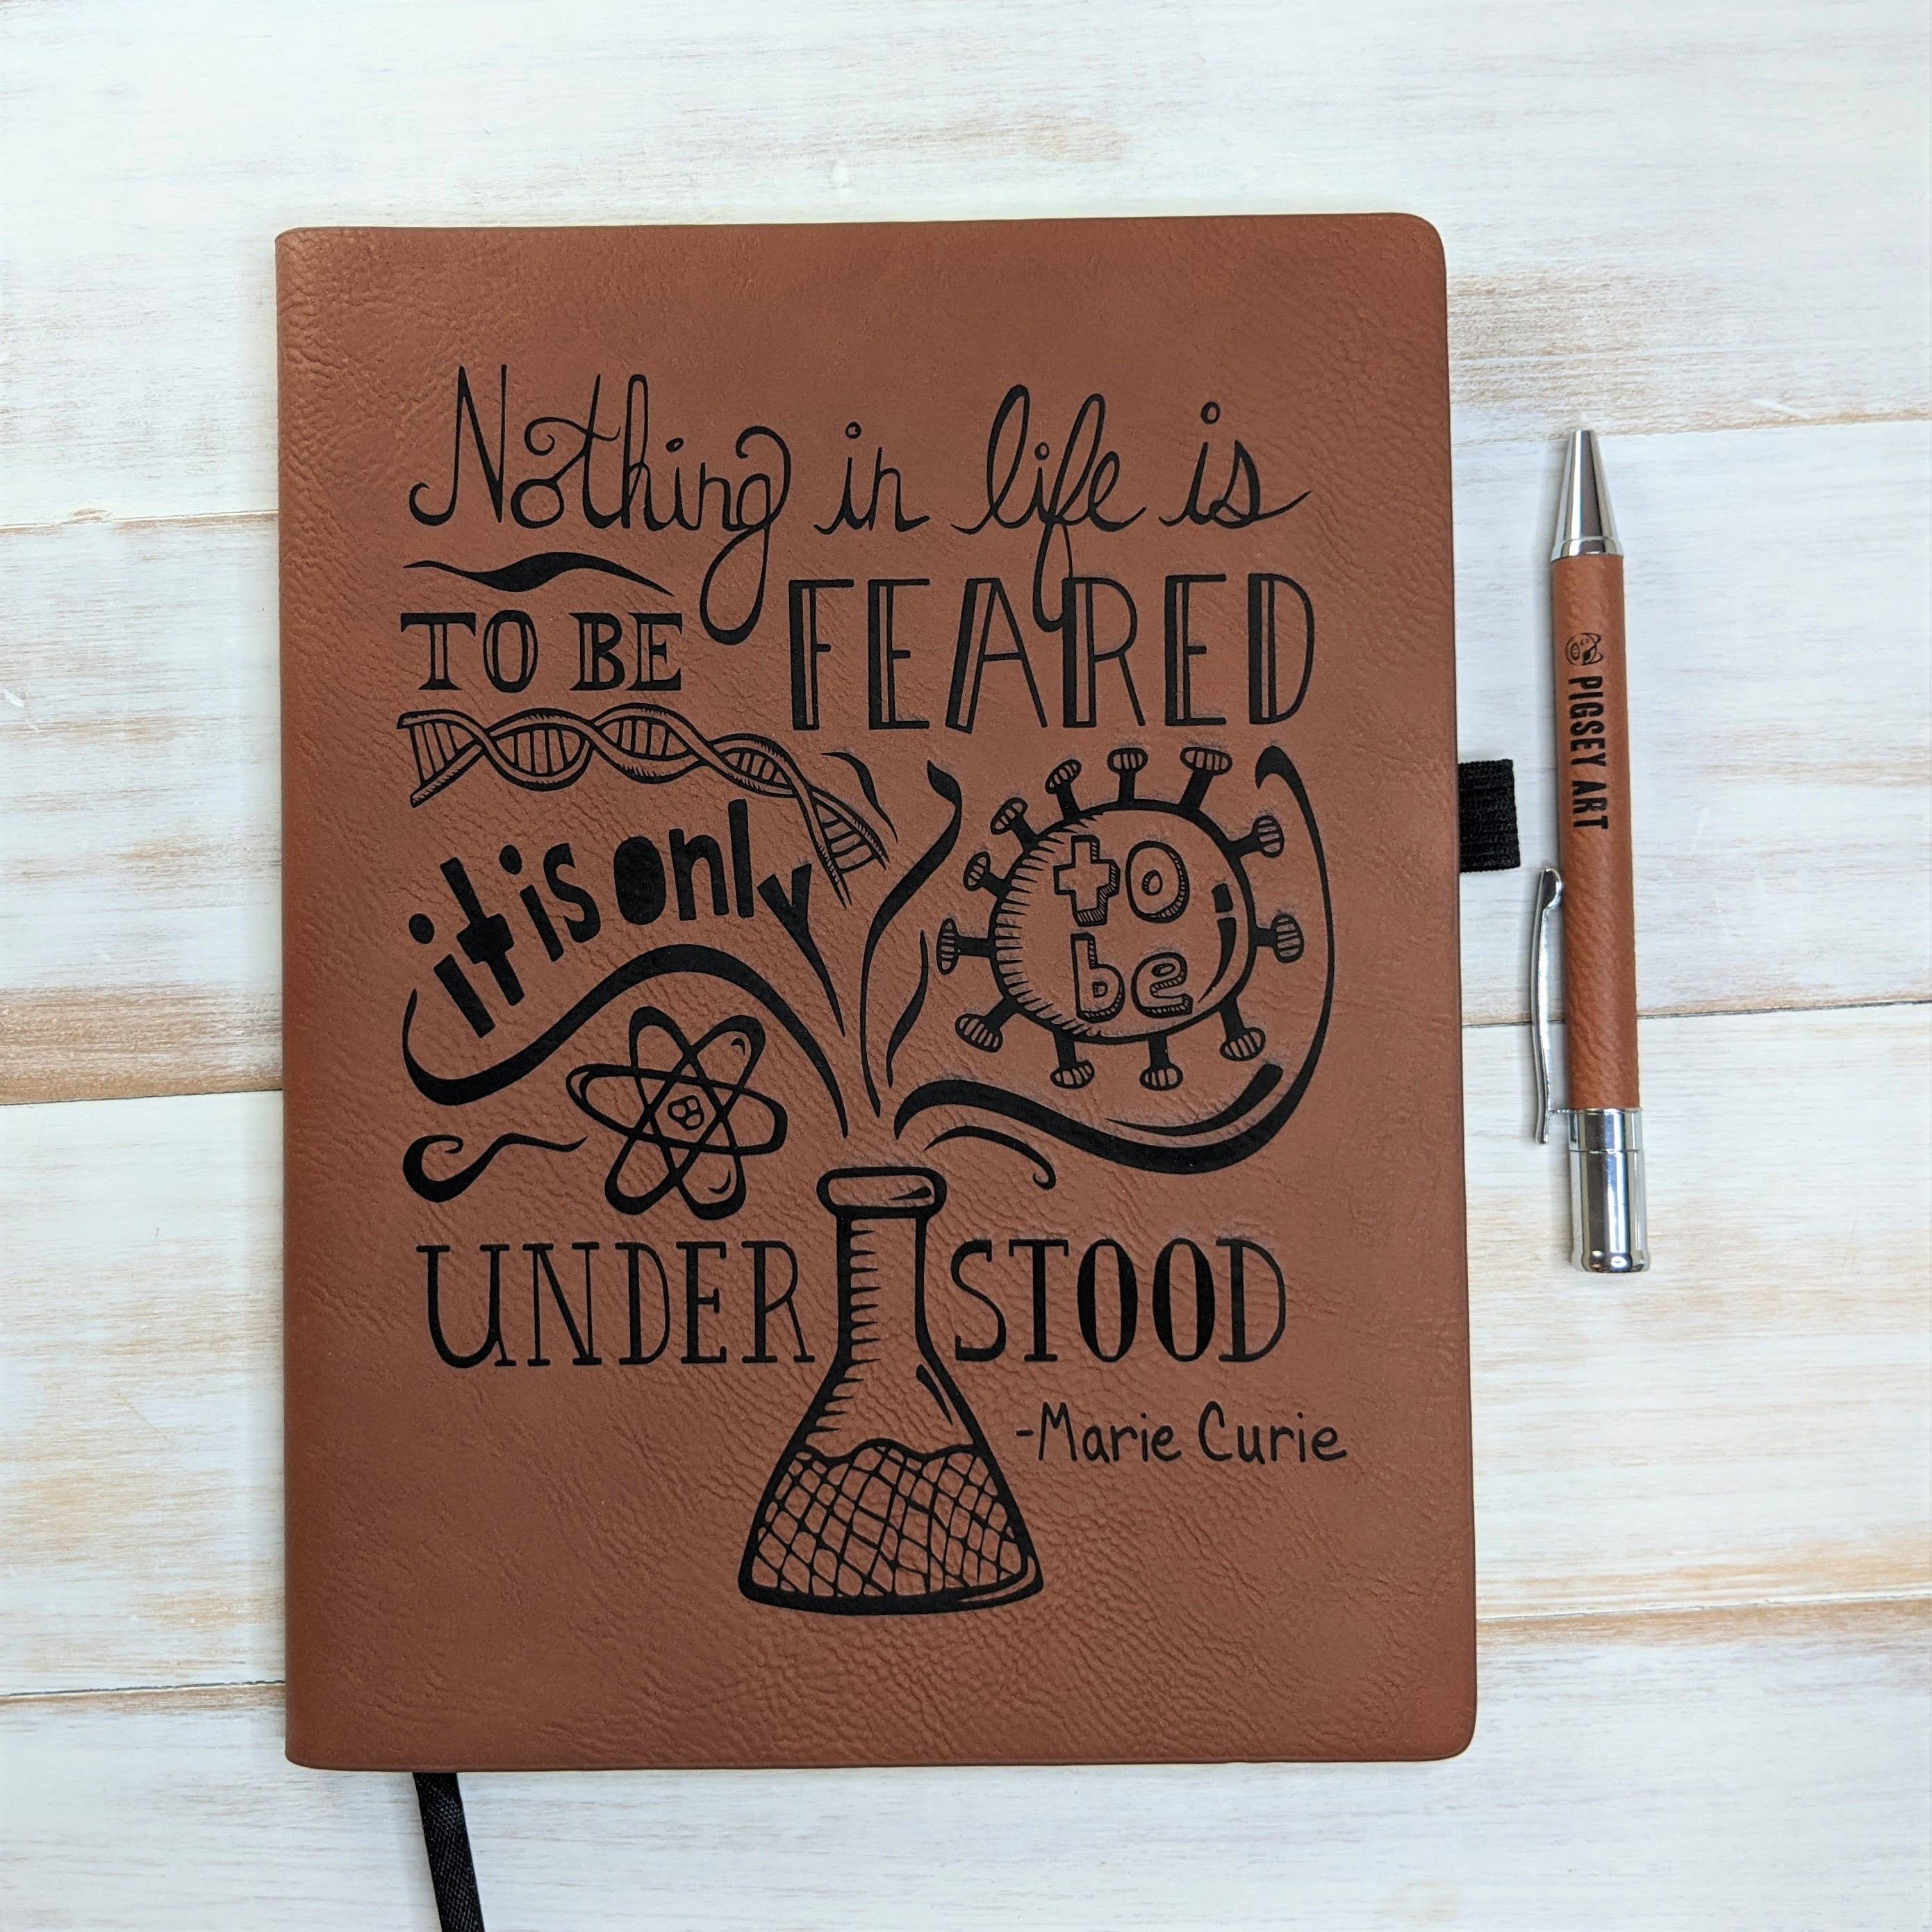 Nothing in life is
TO BE FEARED
it is only
to
be
UNDERSTOOD
-Marie Curie
PIGSEY ART